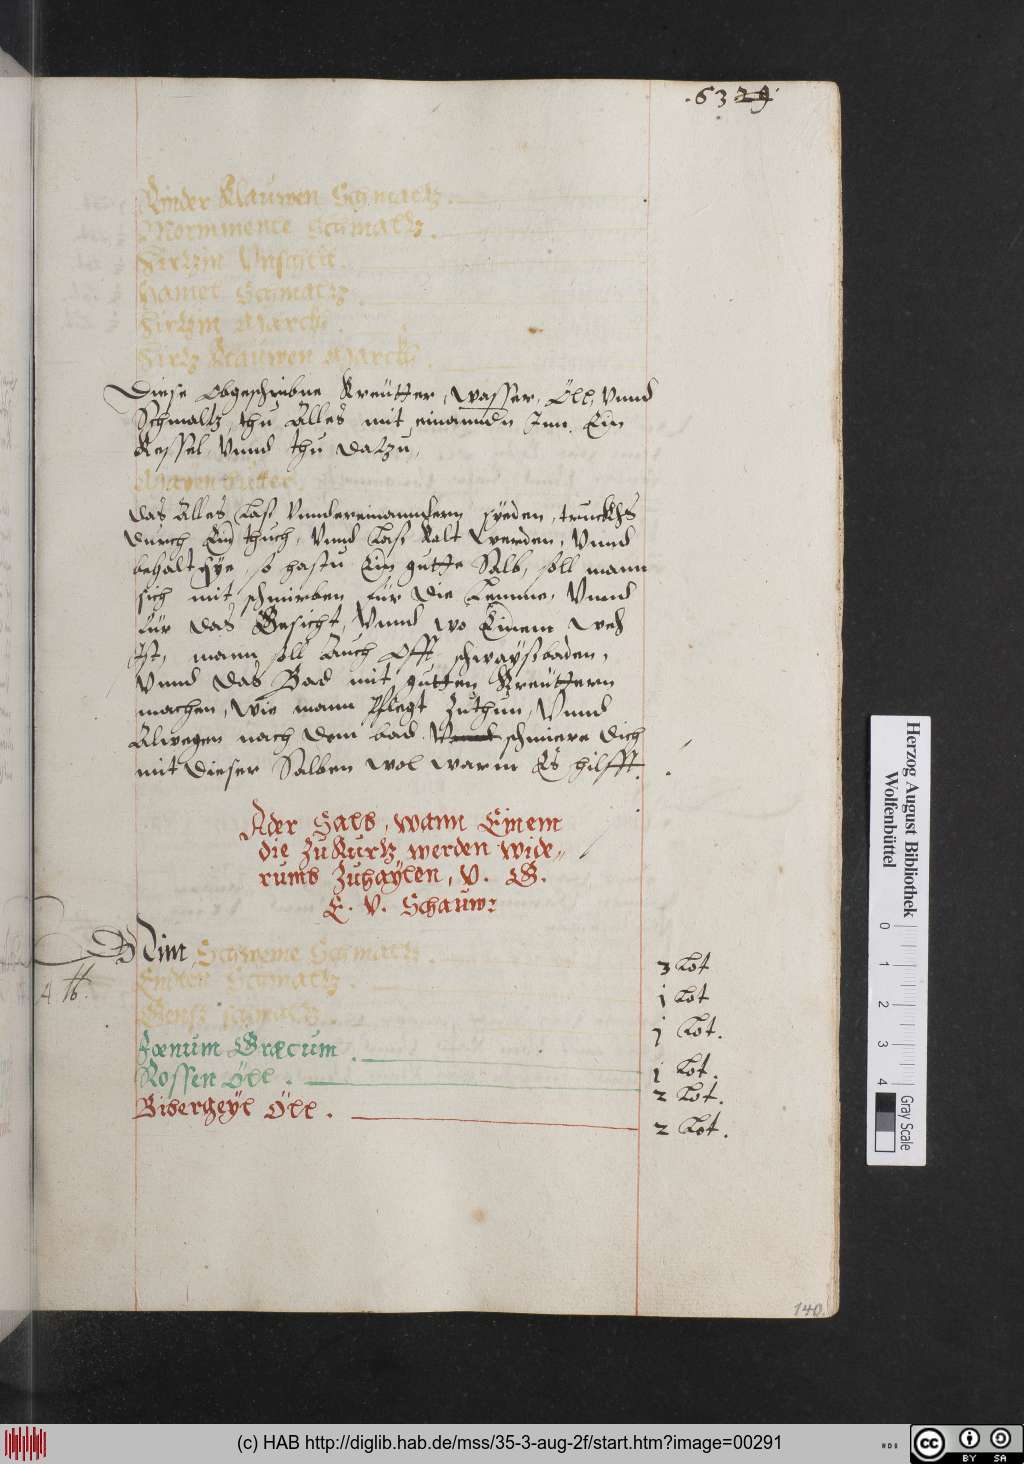 .63 29.
Rinder Klauwen Schmaltz.
Mormmente Schmaltz.
Hirtzin Unschlit.
Hamel Schmaltz.
Hirtzin Marckh.
Hirtz Klauwen Marckh.
Diese Obgeschribne Kreütter, Wasser, Öll, Vnnd
Schmaltz, thu Alles mit einanndn Inn Ein
Kessel, Vnnd thu Datzu,
Mayen Butter.
das Alles Laß Vnndereinanndern syeden, truckhs
durch Ein thuch, Vnnd Laß Kalt Werden, Vnnd
behalt Sye, so hastu Ein gutte Salb, soll mann
sich mit schmirben für die Lemme, Vnnd
für das Gesicht, Vnnd wo Einem Weh
Ist, mann soll Auch Offt schwayßbaden,
Vnnd das Bad mit gutten Kreüttern
machen, Wie mann Pflegt Zuthun, Vnnd
Alwegen nach dem bad Vnnd schmiere dich
mit dieser Salben wol warm Es hilfft.
Ader Salb, wann Einem
die Zu Kurtz werden wide„
rumb Zuhaylen, V. G.
E. V. Schauw:
Nim Schweine Schmaltz. 3 Lot
Endten Schmaltz. j Lot
Genß schmaltz. j Lot.
Fœnum Græcum. j Lot.
Rossen Öll. 2 Lot.
Bibergeyl Öll. 2 Lot.
140.
Herzog August Bibliothek
Wolfenbüttel
0 1 2 3 4
Gray Scale
(c) HAB http://diglib.hab.de/mss/35-3-aug-2f/start.htm?image=00291
cc BY SA